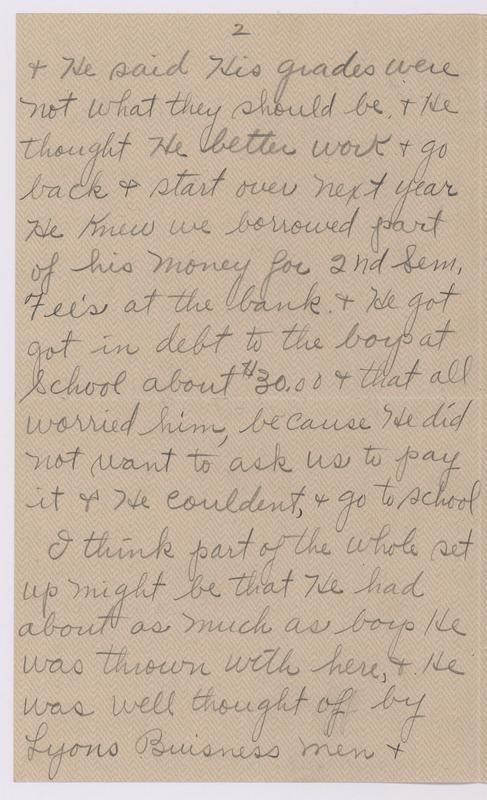 2
+ He said His grades were
not what they should be, + He
thought He better work + go
back + start over next year
He Knew we borrowed part
of his money for 2nd Sem,
Fee's at the bank. + He got
got in debt to the boys at
School about $30.00 + that all
worried him, because He did
not want to ask us to pay
it + He couldent, + go to school
I think part of the whole set
up might be that He had
about as much as boys He
was thrown with here, + He
was well thought of by
Lyons Buisness men +